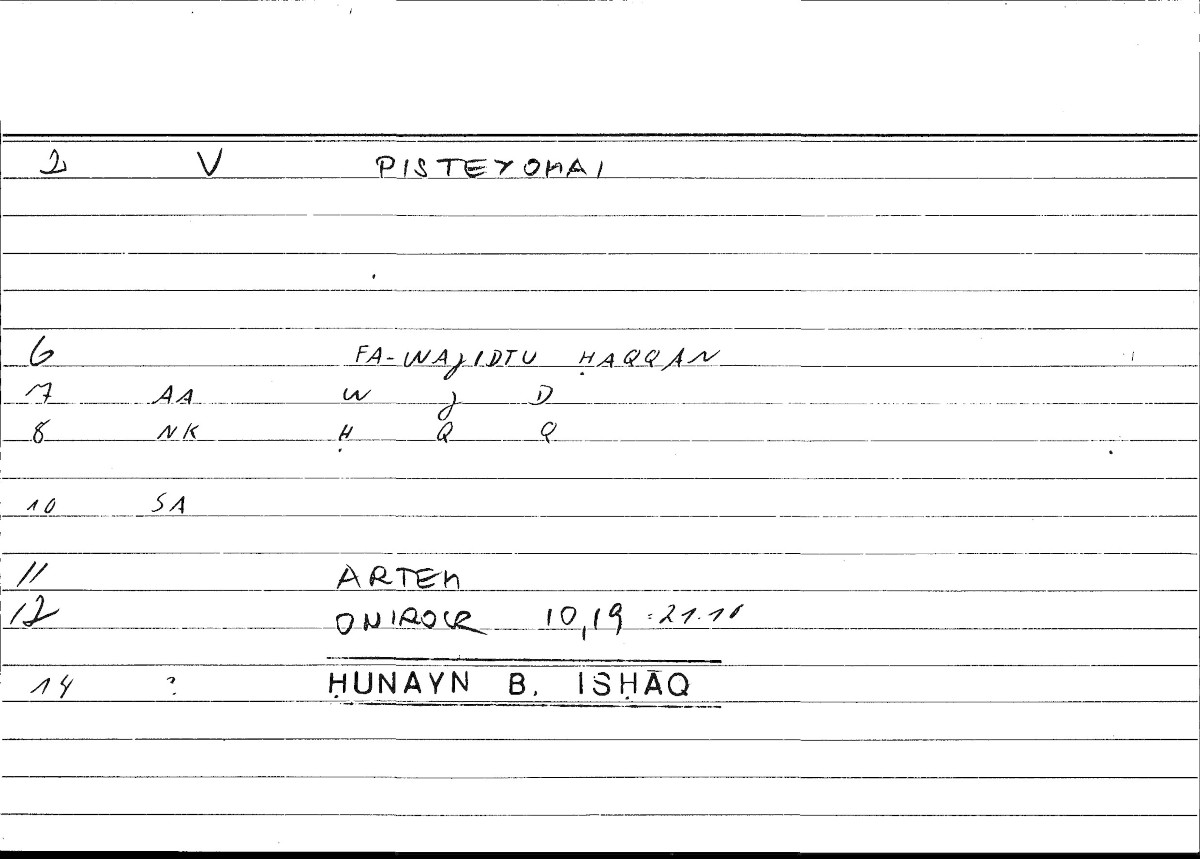 2 V PISTEYOMAI
6 FA-WAJIDTU ḤAQQAN
7 AA W J D
8 NK Ḥ Q Q
10 SA
11 ARTEM
12 ONIROCR 10,19 = 21.16
14 ? ḤUNAYN B. ISḤĀQ